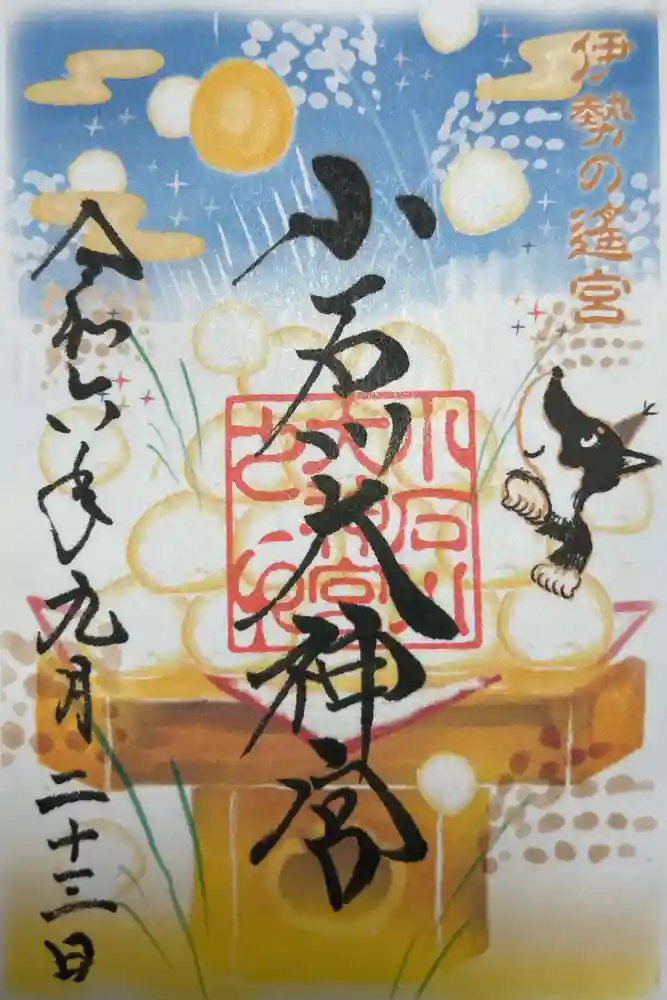 伊勢の遙宮
小石川大神宮
小石川
大神宮
令和六年九月二十三日